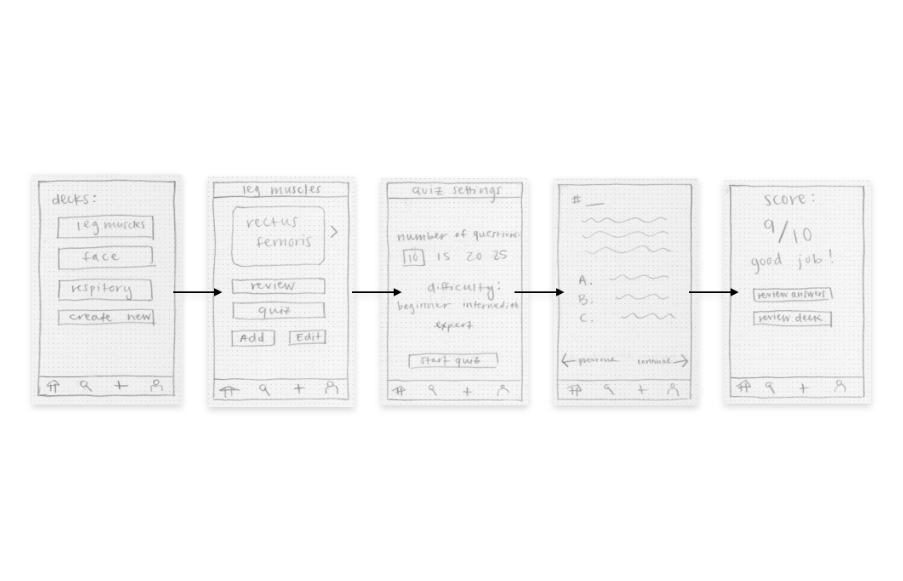 decks:
leg muscles
face
respitory
create new
leg muscles
rectus
femoris
review
quiz
Add Edit
quiz settings
number of questions
10 15 20 25
difficulty:
beginner intermediat
expert
start quiz
#
A.
B.
C.
previous continue
score:
9/10
good job!
review answers
review deck